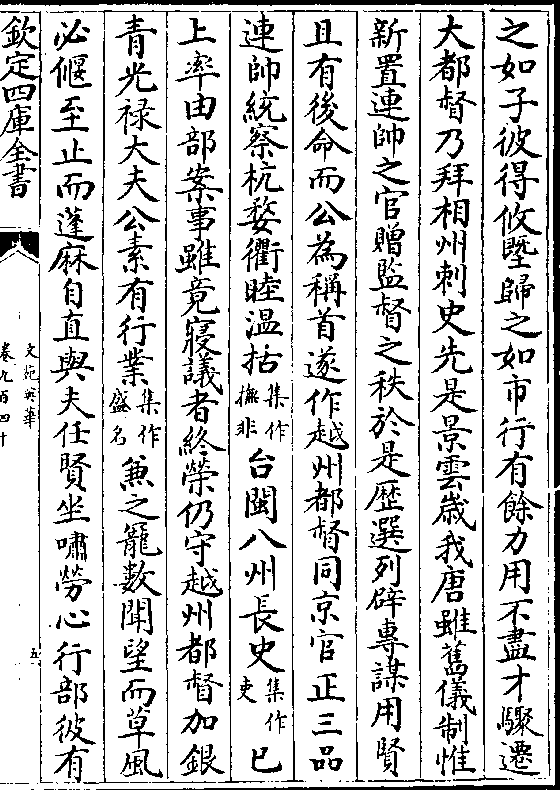 之如子彼得攸塈歸之如市行有餘力用不盡才驟遷
大都督乃拜相州刺史先是景雲歲我唐雖舊儀制惟
新置連帥之官贈監督之秩於是歷選列辟專謀用賢
且有後命而公為稱首遂作越州都督同京官正三品
連帥統察杭婺衢睦溫括集作撫非台閩八州長史集作吏已
上率由部案事雖竟寢議者終榮仍守越州都督加銀
青光禄大夫公素有行業集作盛名兼之寵數聞望而草風
必偃至止而蓬麻自直與夫任賢坐嘯勞心行部彼有
欽定四庫全書
文苑英華
卷九百四十
五